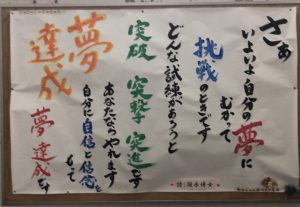 さあ
いよいよ自分の夢に
むかって
挑戦のときです
どんな試練があろうと
突破 突撃 突進です
あなたならやれます
自分に自信と信念を
もって
夢達成
夢 達成です